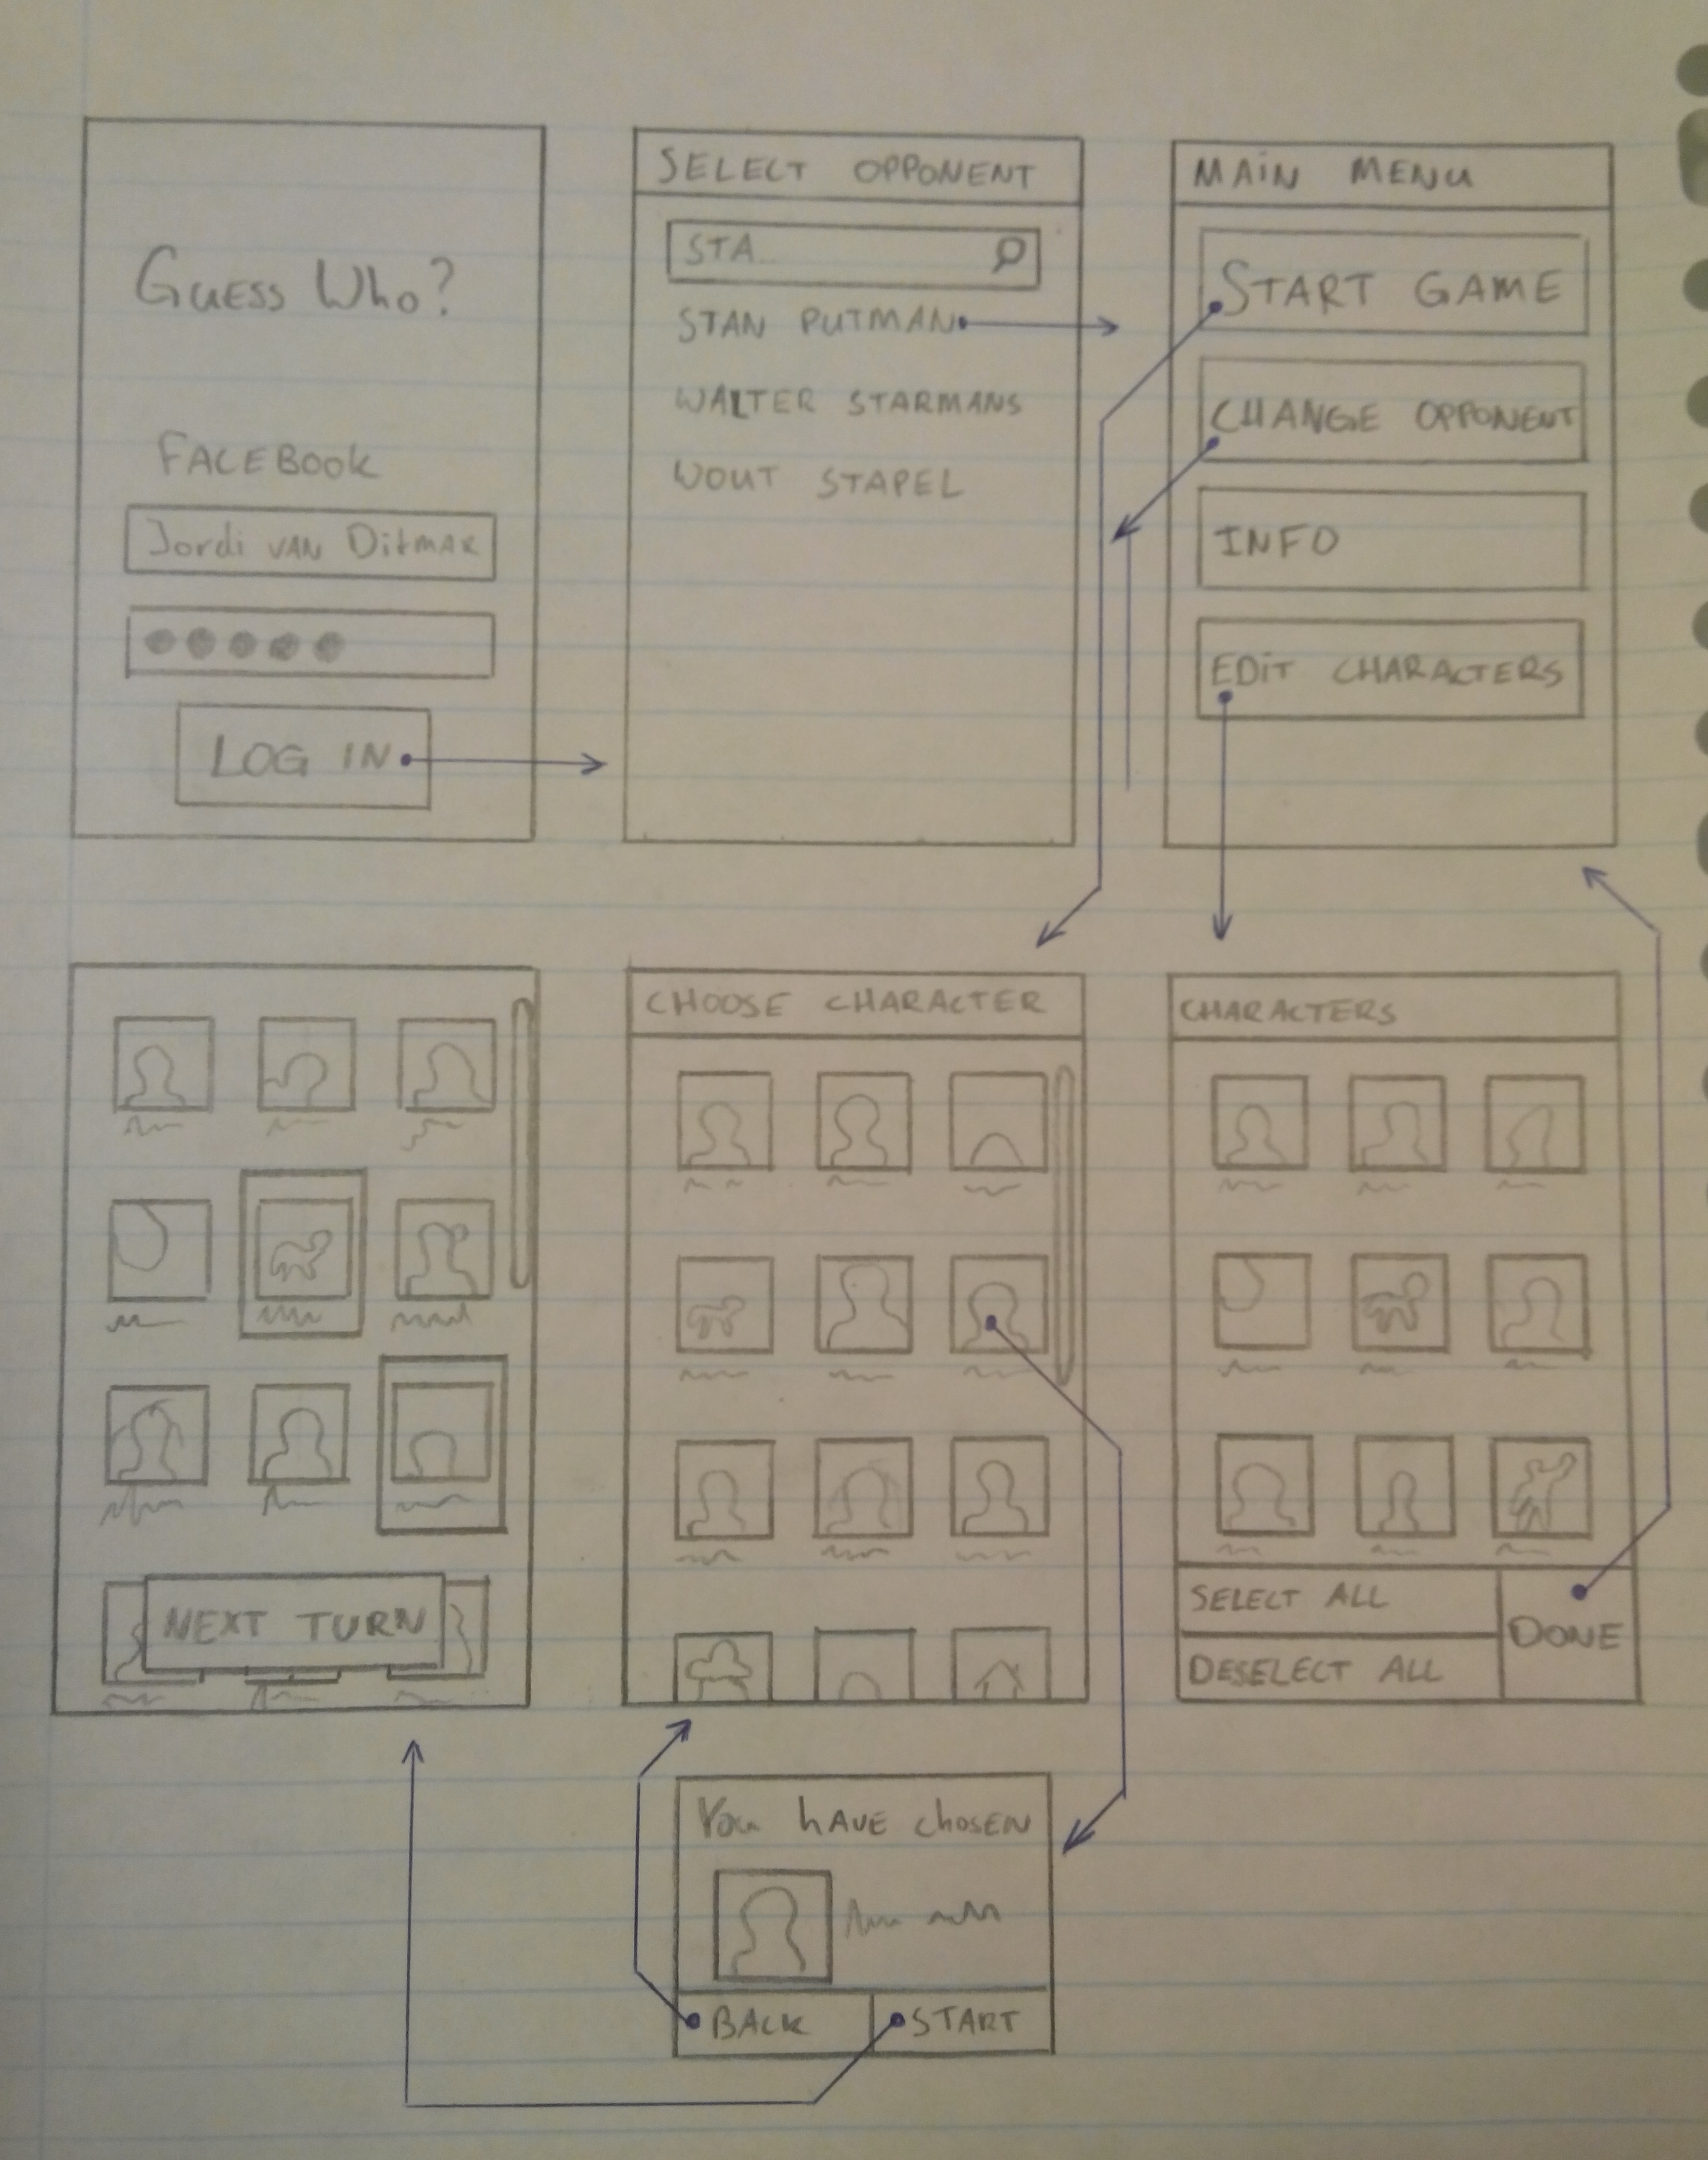 Guess Who?
FACEBOOK
Jordi VAN Ditmar
LOG IN
SELECT OPPONENT
STA
STAN PUTMAN
WALTER STARMANS
WOUT STAPEL
MAiN MENU
START GAME
CHANGE OPPONENT
INFO
EDiT CHARACTERS
NEXT TURN
CHOOSE CHARACTER
CHARACTERS
SELECT ALL
DESELECT ALL
DONE
You hAVE chosEN
BACK
START